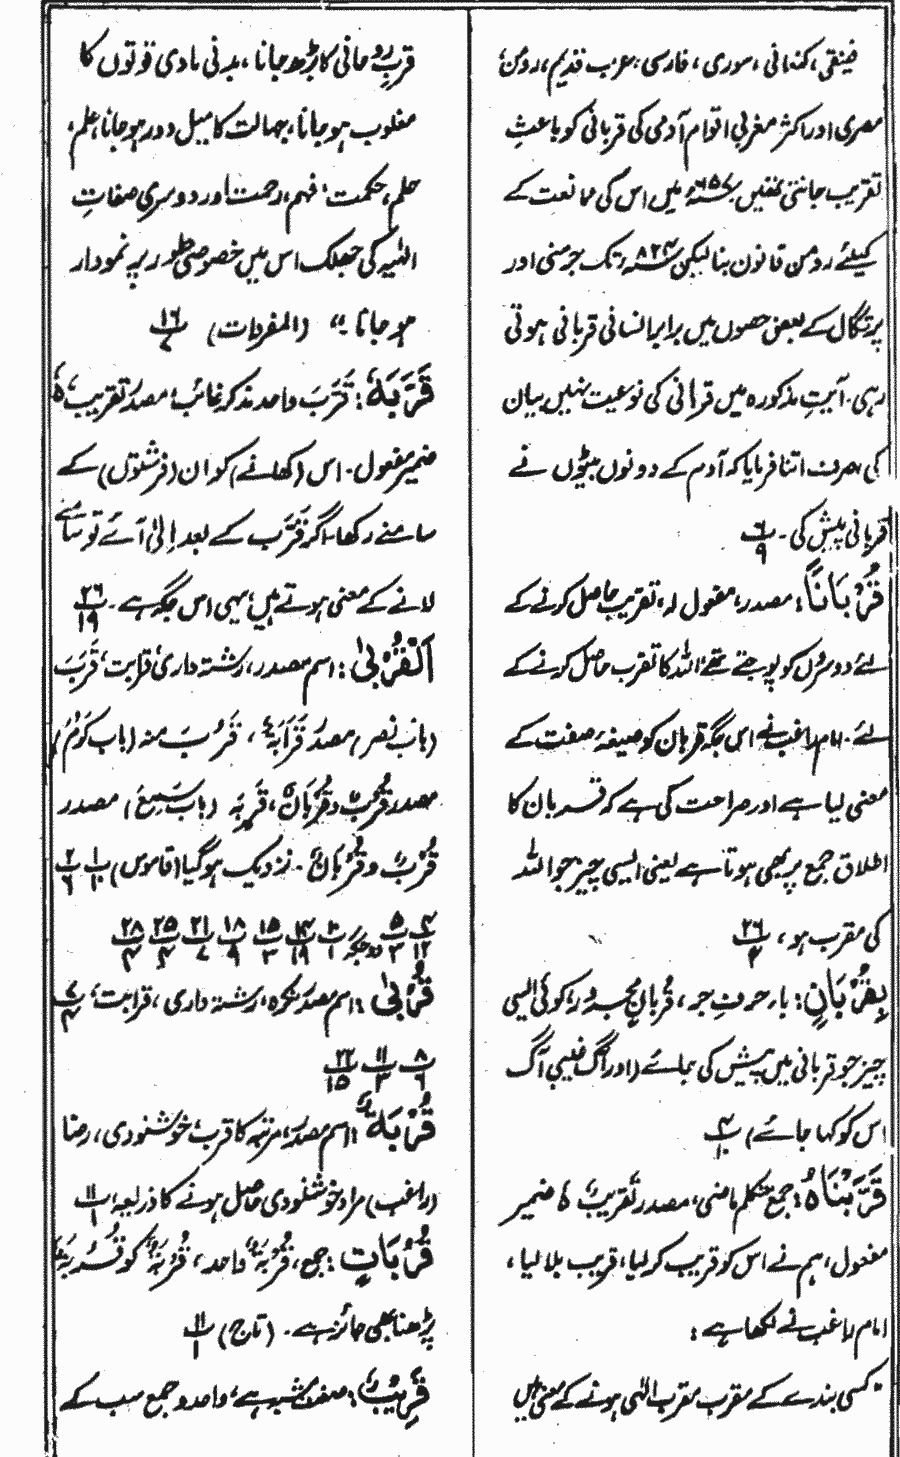 فینقی، کنعانی، سوری، فارسی، عرب قدیم، رومن،
مصری اور اکثر مغربی اقوام آدمی کی قربانی کو باعثِ
تقریب جانتی تھیں ۶۵۷ء میں اس کی ممانعت کے
کیلئے رومن قانون بنا لیکن ۸۲۴ء تک جرمنی اور
پرتگال کے بعض حصوں میں برابر انسانی قربانی ہوتی
رہی۔ آیتِ مذکورہ میں قرآنی کی نوعیت نہیں بیان
کی، صرف اتنا فرمایا کہ آدم کے دونوں بیٹوں نے
قربانی پیش کی۔ ۶/۹
قُرْبَاناً: مصدر، مفعول لہ، تقریب حاصل کرنے کے
لئے دوسروں کو پوجتے تھے؛ اللہ کا تقرب حاصل کرنے کے
لئے۔ امام راغب نے اس جگہ قربان کو صیغہ، صفت کے
معنی لیا ہے اور صراحت کی ہے کہ قربان کا
اطلاق جمع پر بھی ہوتا ہے یعنی ایسی چیز جو اللہ
کی مقرب ہو، ۲۶/۲
بِقُرْبَانٍ: با، حرفِ جر، قُربانٍ مجرور، کوئی ایسی
چیز جو قربانی میں پیش کی جائے (اور آگ غیبی آگ
اس کو کھا جائے) ۴/۱۰
قَرَّبْنَاہُ: جمع متکلم ماضی، مصدر تقریبٌ ہٗ ضمیر
مفعول، ہم نے اس کو قریب کر لیا، قریب بلا لیا،
امام راغب نے لکھا ہے:
"کسی بندے کے مقرب مقرب الٰہی ہونے کے معنی ہیں
قربِ روحانی کا بڑھ جانا، بدنی مادی قوتوں کا
مغلوب ہو جانا، جہالت کا میل دور ہو جانا، علم،
حلم، حکمت، فہم، رحمت اور دوسری صفاتِ
الٰہیہ کی جھلک اس میں خصوصی طور پر نمودار
ہو جانا۔" (المفردات) ۱۶/۷
قَرَّبَہٗ: قَرَّبَ واحد مذکر غائب، مصدر تقریبٌ، ہٗ
ضمیر مفعول۔ اس (کھانے) کو ان (فرشتوں) کے
سامنے رکھا۔ اگر قَرَّب کے بعد اِلیٰ آئے تو سامنے
لانے کے معنی ہوتے ہیں، یہی اس جگہ ہے۔ ۲۶/۱۹
اَلْقُرْبیٰ: اسم مصدر، رشتہ داری، قرابت، قَرَبَ
(باب نصر) مصدر قَرَابَۃٌ، قَرُبَ منہ (باب کَرُمَ)
مصدر قُربٌ و قُربَانٌ، قَرِبَہ (باب سَمِعَ) مصدر
قُرْبٌ و قُرْبَانٌ۔ نزدیک ہو گیا (قاموس) ۱/۱۰ ۲/۶
۴/۱۲ ۵/۳ دو جگہ ۱۰/۱ ۱۴/۱۹ ۱۵/۳ ۱۸/۹ ۲۱/۷ ۲۵/۴ ۲۸/۴
قُرْبیٰ: اسم مصدر نکرہ، رشتہ داری، قرابت، ۷/۴
۸/۶ ۱۱/۳ ۲۲/۱۵
قُرْبَۃٌ: اسم مصدر، مرتبہ کا قرب، خوشنودی، رضا
(راغب) مراد خوشنودی حاصل ہونے کا ذریعہ، ۱۱/۱
قُرُبَاتٍ: جمع، قُرْبَۃٌ واحد، قُرْبَۃٌ کو قُرُبَۃٌ
پڑھنا بھی جائز ہے۔ (تاج) ۱۱/۱
قَرِیْبٌ: صفت مشبہ ہے، واحد و جمع سب کے